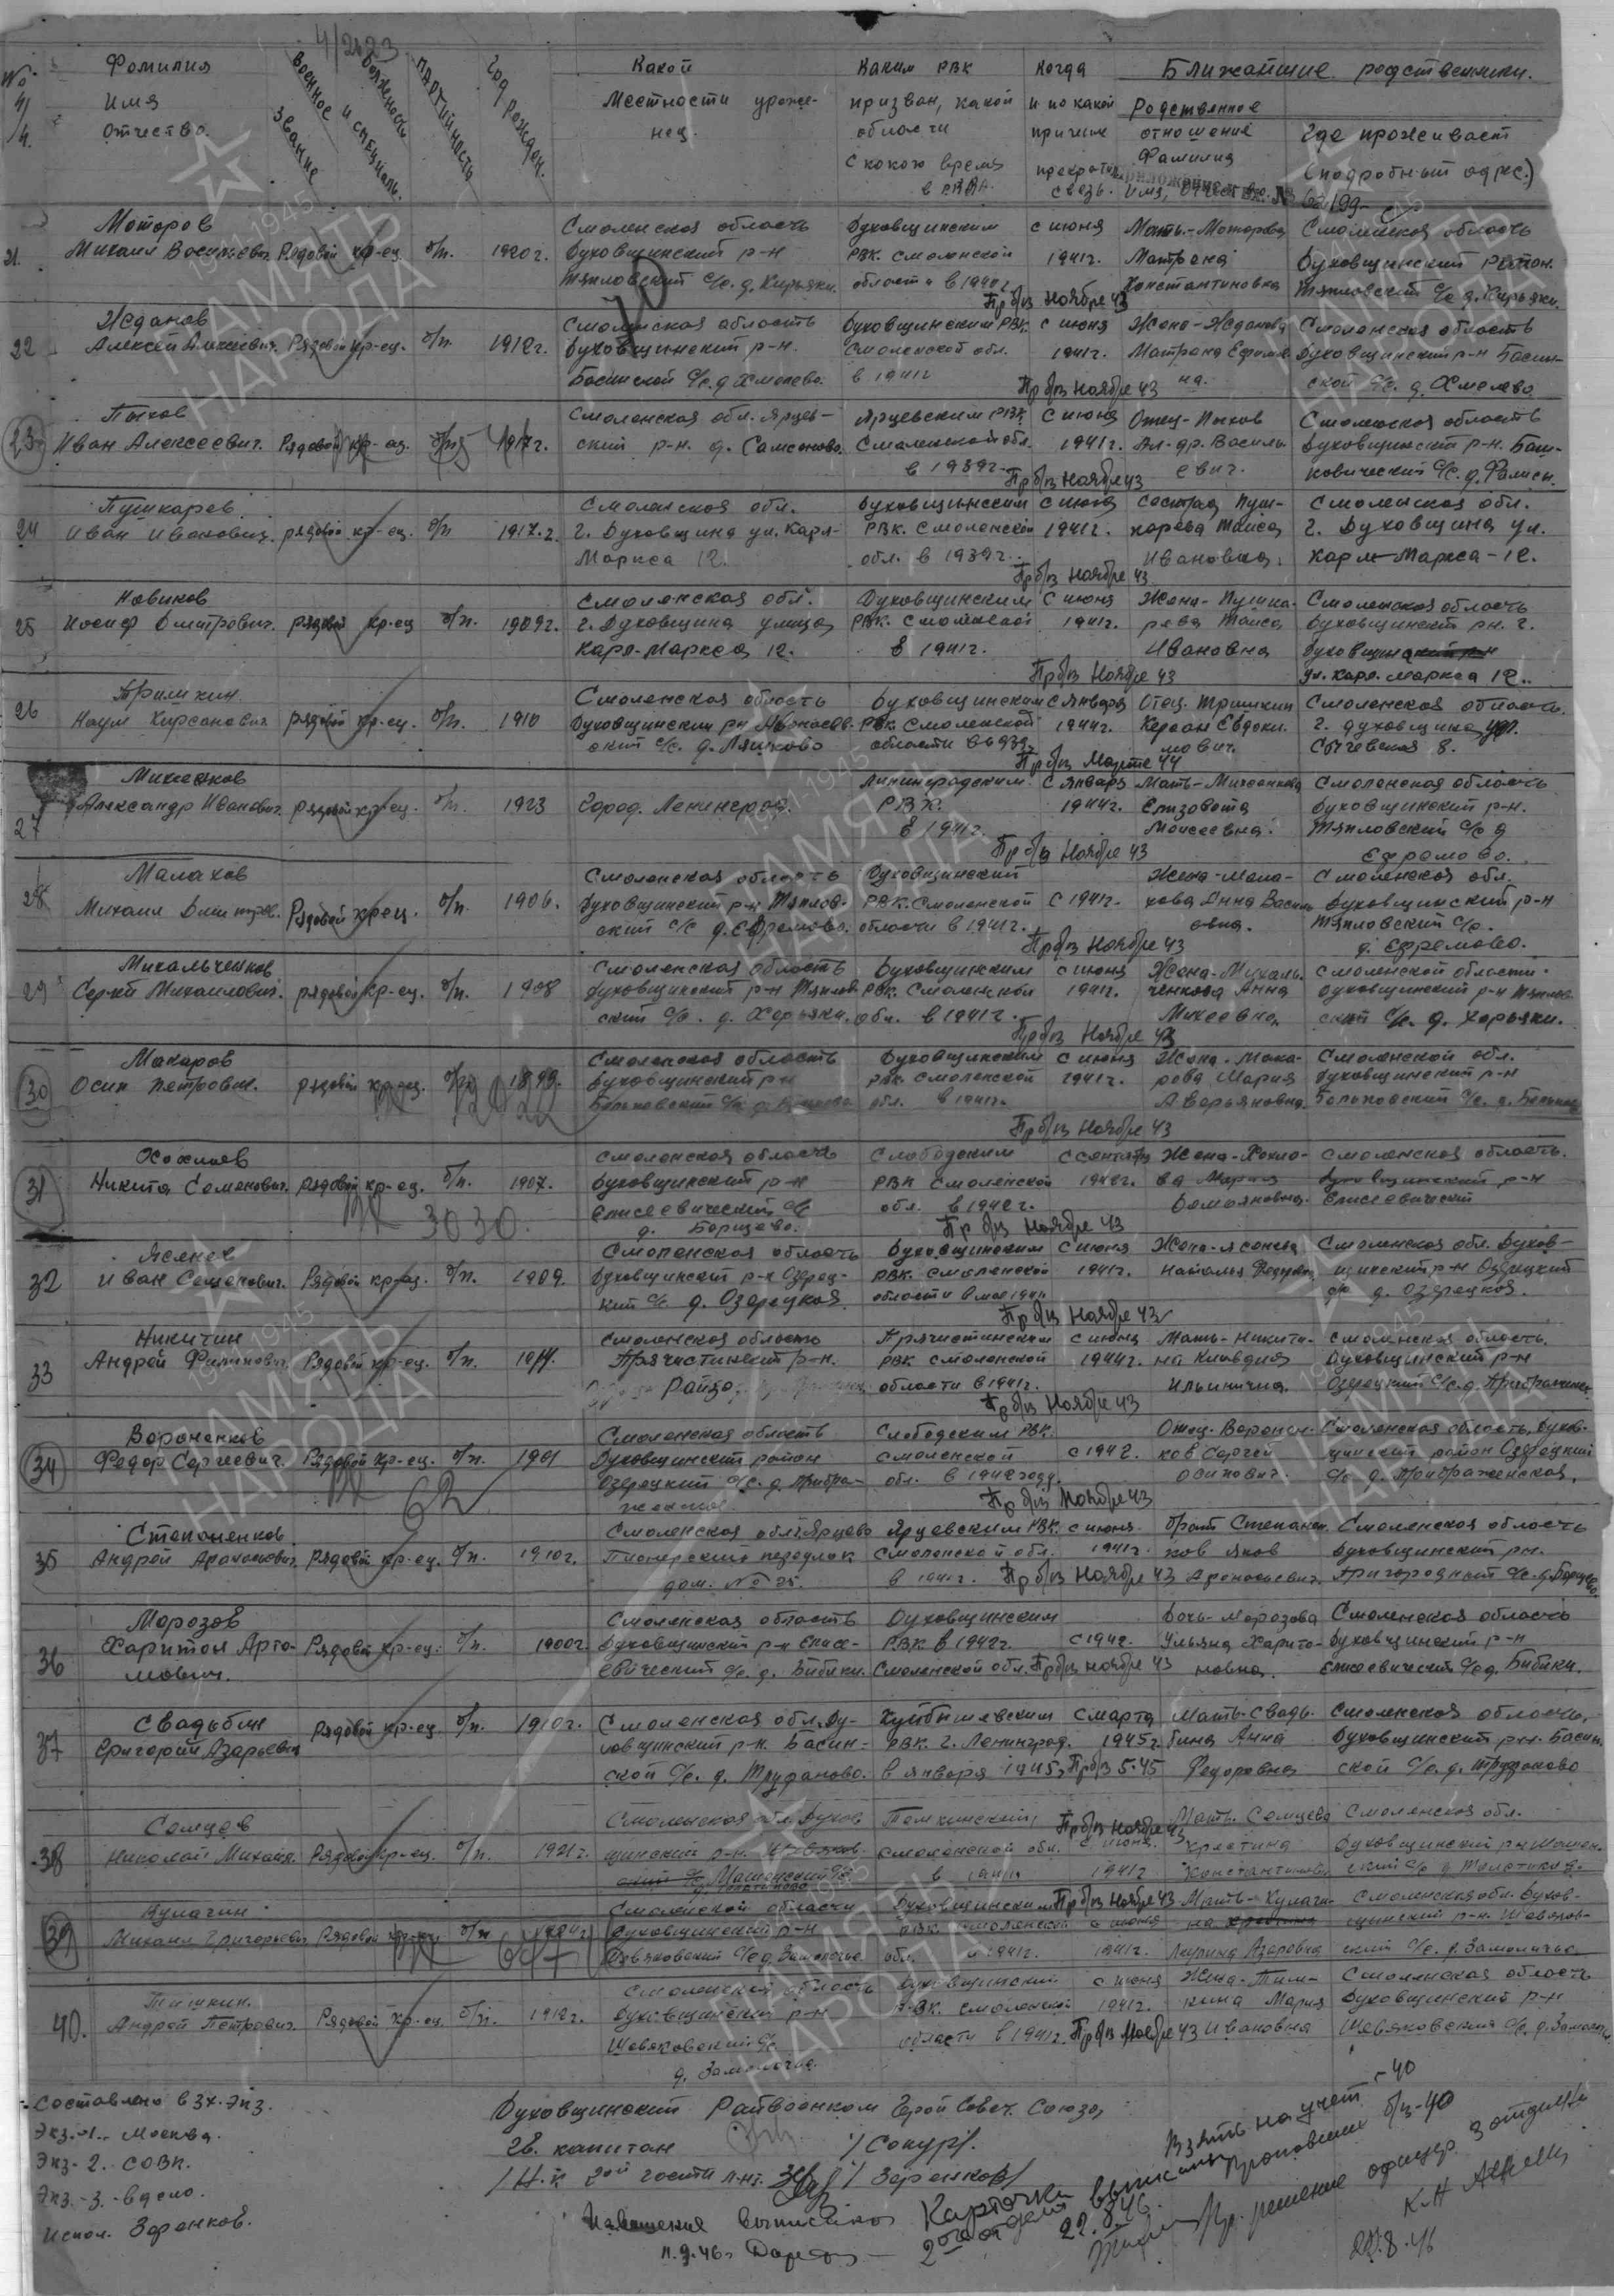 4/2423
№ п/п.
Фамилия Имя Отчество.
Военное звание
Должность и специальн.
партийность
Год рожден.
Какой местности уроже-нец.
Каким РВК призван, какой области с какого время в РККА.
Когда и по какой причине прекратил. связь.
Ближайшие родственники.
Родственное отношение Фамилия имя, отчество.
Где проживает (подробный адрес.)
21. Моторов Михаил Васильевич Рядовой кр-ец б/п. 1920г. Смоленская область Духовщинский р-н Тяпловский с/с. д. Кирьяки. Духовщинским РВК. Смоленской области в 1940г. с июня 1941г. Пр б/из Ноябре 43 Мать-Моторова Матрена Константиновна Смоленская область Духовщинский район. Тяпловский с/с д. Кирьяки.
22 Жданов Алексей Алексеевич. Рядовой кр-ец. б/п. 1912г. Смоленская область Духовщинский р-н. Басинской с/с. д Хмелево. Духовщинским РВК. Смоленской обл. в 1941г с июня 1941г. Пр б/из Ноябре 43 Жена-Жданова Матрена Ефимов-на. Смоленская область Духовщинский р-н Басин-ской с/с. д. Хмелево
23 Пыхов Иван Алексеевич. Рядовой кр-ец. б/п 1917г. Смоленская обл. Ярцев-ский р-н. д. Самсоново. Ярцевским РВК Смоленской обл. в 1939г. с июня 1941г. Пр б/из Ноябре 43 Отец-Пыхов Ал-др. Василь-евич. Смоленская область Духовщинский р-н.
24 Пушкарев. Иван Иванович. рядовой кр-ец. б/п 1917.г. Смоленская обл. г. Духовщина ул. Карл-Маркса 12. Духовщинским РВК. Смоленской обл. в 1939г. с июня 1941г. Пр б/из Ноябре 43 Сестра Пуш-карева Таиса Ивановна. Смоленская обл. г. Духовщина ул. Карл-Маркса-12.
25 Новиков Иосиф Дмитрович. рядовой кр-ец б/п. 1909г. Смоленская обл. г. Духовщина улица Карл-Маркса 12. Духовщинским РВК. Смоленской в 1941г. с июня 1941г. Пр б/из Ноябре 43 Жена-Пушка-рева Таиса Ивановна Смоленская область Духовщинский рн. г. Духовщина ул. Карл. Маркса 12.
26 Тришкин Наум Кирсанович рядовой кр-ец. б/п. 1910 Смоленская область Духовщинский рн с/с. д. Ляхково Духовщинским РВК. Смоленской области с января 1944г. Пр б/из Марте 44 Отец. Тришкин Керсан Евдоки-мович. Смоленская область. г. Духовщина ул. Сычевская 8.
27 Михеенков Александр Иванович. рядовой кр-ец. б/п. 1923 Город. Ленинград. Ленинградским РВК. в 1941г. с января 1944г. Пр б/из Ноябре 43 Мать-Михеенкова Елизавета Моисеевна. Смоленская область Духовщинский р-н. Тяпловский с/с д Ефремово.
28 Малахов Михаил Дмитрев. Рядовой кр-ец. б/п. 1906. Смоленская область Духовщинский р-н Тяплов-ский с/с д. Ефремово. Духовщинский РВК. Смоленской области в 1941г. с 1941г. Пр б/из Ноябре 43 Жена-Мала-хова Анна Василь-евна. Смоленская обл. Духовщинский р-н Тяпловский с/с. д. Ефремово.
29 Михальченков Сергей Михаилович. рядовой кр-ец. б/п. 1908 Смоленская область Духовщинский р-н Тяплов-ский с/с. д. Харьяки. Духовщинским РВК. Смоленской обл. в 1941г. с июня 1941г. Пр б/из Ноябре 43 Жена-Михаль-ченкова Анна Михеевна. Смоленской области. Духовщинский р-н Тяплов-ский с/с. д. Харьяки.
30 Макаров Осип Петрович. рядовой кр-ец. б/п 1899. Смоленская область Духовщинский р-н Духовщинским РВК. Смоленской обл. в 1941г. с июня 1941г. Пр б/из Ноябре 43 Жена-Мака-рова Мария Аверьяновна. Смоленской обл. Духовщинский р-н
31 Хохлов Никита Семенович. рядовой кр-ец. б/п. 1907. 3030. Смоленская область Духовщинский р-н Елисеевический с/с д. Борщево. Слободским РВК Смоленской обл. в 1942г. с сентября 1942г. Пр б/из Ноябре 43 Жена-Хохло-ва Мария Демьяновна. Смоленская область. Духовщинский р-н Елисеевический
32 Ясенев Иван Семенович. Рядовой кр-ец. б/п. 1909. Смоленская область Духовщинский р-н Озерец-кий с/с д. Озерецкая. Духовщинским РВК. Смоленской области в мае 1941 с июня 1941г. Пр б/из Ноябре 43 Жена-Ясенева Наталья Федоровна Смоленская обл. Духов-щинский р-н Озерецкий с/с д. Озерецкая.
33 Никитин Андрей Филипович. Рядовой кр-ец. б/п. Смоленская область Пречистинский р-н. Пречистинским РВК Смоленской области в 1941г. с июня 1944г. Пр б/из Ноябре 43 Мать-Никити-на Клавдия Ильинична. Смоленская область. Духовщинский р-н Озерецкий с/с. д.
34 Вороненков Федор Сергеевич. Рядовой кр-ец. б/п. 1901 62 Смоленская область Духовщинский район Озерецкий с/с. д. Слободским РВК. Смоленской обл. в 1942 году. с 1942. Пр б/из Ноябре 43 Отец-Воронен-ков Сергей Осипович. Смоленская область, Духов-щинский район Озерецкий с/с. д. Приображенская.
35 Степоненков Андрей Афанасович. Рядовой кр-ец. б/п. 1910г. Смоленская обл. г. Ярцево Пионерский переулок дом. № 25. Ярцевским РВК. Смоленской обл. в 1941г. с июня 1941г. Пр б/из Ноябре 43 брат Степанен-ков Яков Афонасьевич. Смоленская область Духовщинский рн. Пригородный с/с. д. Борщево.
36 Морозов Харитон Арта-мович. Рядовой кр-ец. б/п. 1900г. Смоленская область Духовщинский р-н Елисе-евический с/с. д. Бибики. Духовщинским РВК в 1942г. Смоленской обл. с 1942. Пр б/из Ноябре 43 Дочь-Морозова Ульяна Харито-новна. Смоленская область Духовщинский р-н Елисеевический с/с д. Бибики.
37 Свадьбин Григорий Азарьевич Рядовой кр-ец. б/п. 1910г. Смоленская обл. Ду-ховщинский р-н. Басин-ской с/с. д. Труфаново. Куйбышевским РВК. г. Ленинград. в январе 1945г с марта 1945г Пр б/из 5.45 Мать-Свадь-бина Анна Федоровна Смоленская область, Духовщинский р-н. Басин-ской с/с. д. Труфаново
38 Семцев Николай Михайл. Рядовой кр-ец. б/п. 1921г. Смоленская обл. Духов-щинский р-н. Темкинский Смоленской обл. в 1941г. Пр б/из Ноябре 43 с июня. 1941г Мать. Семцева Христина Константиновна Смоленская обл. Духовщинский р-н
39 Кулагин Михаил Григорьевич Рядовой кр-ец б/п Смоленской области Духовщинский р-н Шевяковский с/с д. Замощье. Духовщинским РВК Смоленской обл. в 1941г. Пр б/из Ноябре 43 с июня 1941г. Мать-Кулаги-на Азаровна Смоленская обл. Духов-щинский р-н. Шевяков-ский с/с. д.
40. Тимкин. Андрей Петрович. Рядовой кр-ец. б/п. 1912г. Смоленская область Духовщинский р-н Шевяковский с/с Духовщинский РВК Смоленской области в 1941г. с июня 1941г. Пр б/из Ноябре 43 Жена-Тим-кина Мария Ивановна Смоленская область Духовщинский р-н Шевяковский с/с.
Составлено в 3х. экз.
Экз.-1.- Москва.
Экз-2. СОВК.
Экз.-3.-в дело.
Испол. Заренков.
Духовщинский Райвоенком Герой Совет. Союза,
гв. капитан /Сокур/.
/Н-к 2ой части л-нт. /Заренков/
Извещения выписано
11.9.46г
Карточки выписаны
2ого отдела 22.8.46.
Взять на учет - 40
пропавших б/из-40
Пр. решение офицер 3 отдела
К-н
20.8.46
ПАМЯТЬ НАРОДА
1941 1945